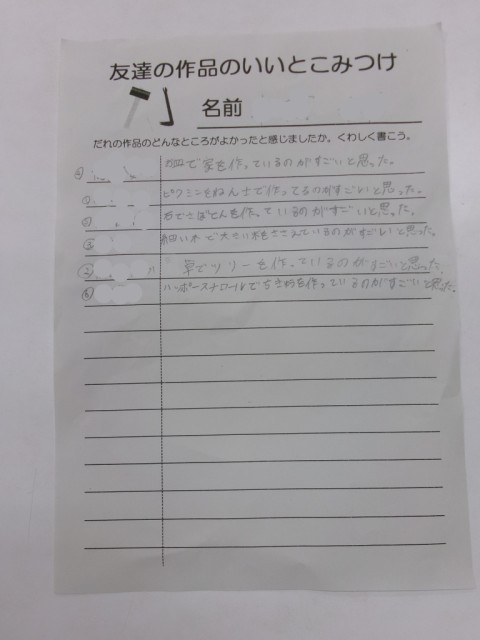 友達の作品のいいとこみつけ
名前
だれの作品のどんなところがよかったと感じましたか。くわしく書こう。
で家を作っているのがすごいと思った。
ピクミンをねん土で作ってるのがすごいと思った。
石でさぼてんを作っているのがすごいと思った。
細い木で大きい木をささえているのがすごいと思った。
草でツリーを作っているのがすごいと思った。
⑥ でちきゅうを作っているのがすごいと思った。